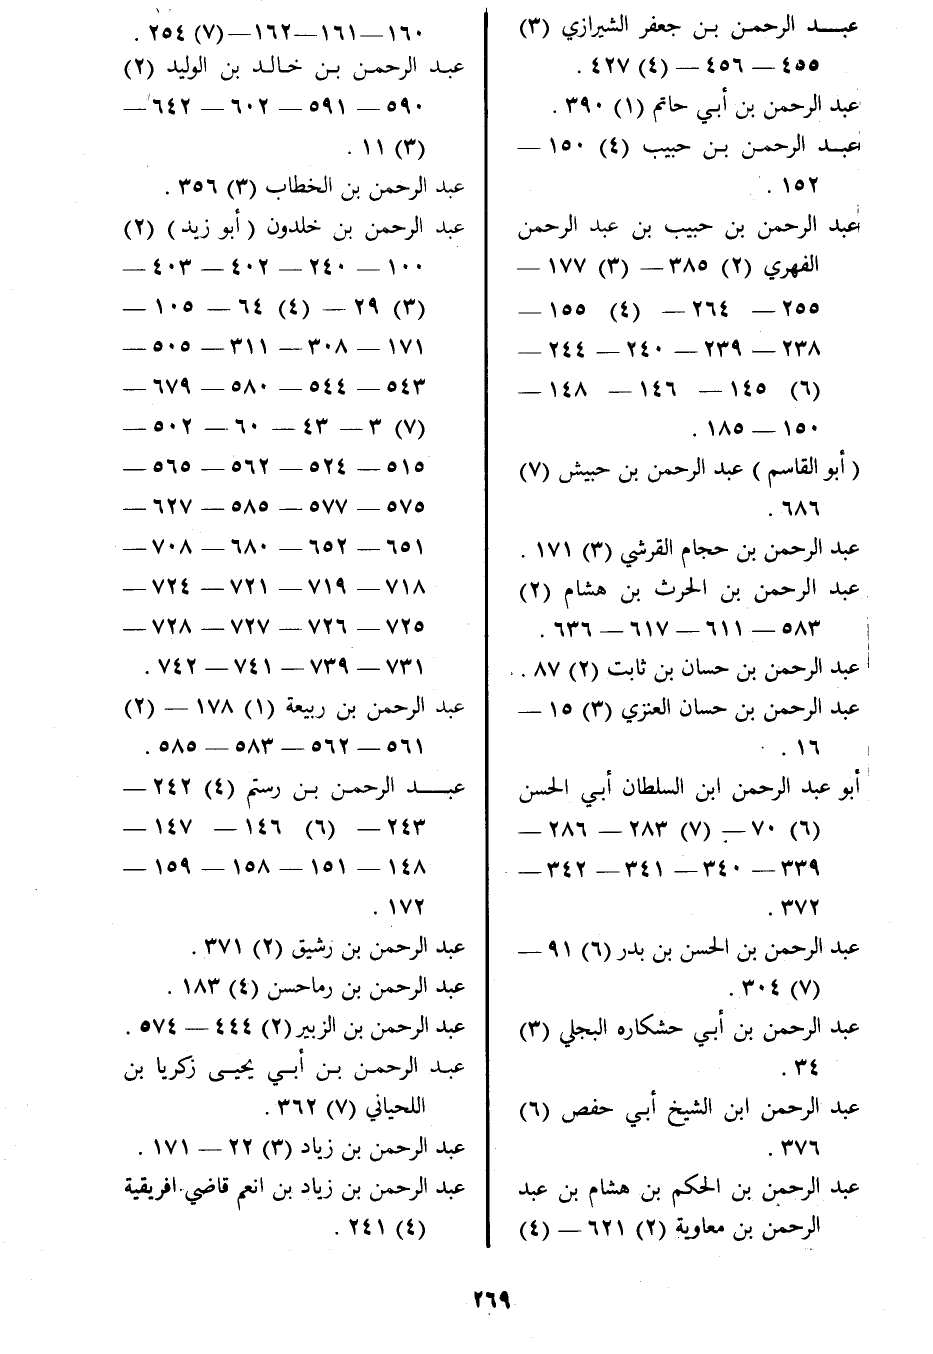 عبد الرحمن بن جعفر الشيرازي (٣)
٤٥٥ — ٤٥٦ — (٤) ٤٢٧ .
عبد الرحمن بن أبي حاتم (١) ٣٩٠ .
عبد الرحمن بن حبيب (٤) ١٥٠ —
١٥٢ .
عبد الرحمن بن حبيب بن عبد الرحمن
الفهري (٢) ٣٨٥ — (٣) ١٧٧ —
٢٥٥ — ٢٦٤ — (٤) ١٥٥ —
٢٣٨ — ٢٣٩ — ٢٤٠ — ٢٤٤ —
(٦) ١٤٥ — ١٤٦ — ١٤٨ —
١٥٠ — ١٨٥ .
( أبو القاسم ) عبد الرحمن بن حبيش (٧)
٦٨٦ .
عبد الرحمن بن حجام القرشي (٣) ١٧١ .
عبد الرحمن بن الحرث بن هشام (٢)
٥٨٣ — ٦١١ — ٦١٧ — ٦٣٦ .
عبد الرحمن بن حسان بن ثابت (٢) ٨٧ .
عبد الرحمن بن حسان العنزي (٣) ١٥ —
١٦ .
أبو عبد الرحمن ابن السلطان أبي الحسن
(٦) ٧٠ — (٧) ٢٨٣ — ٢٨٦ —
٣٣٩ — ٣٤٠ — ٣٤١ — ٣٤٢ —
٣٧٢ .
عبد الرحمن بن الحسن بن بدر (٦) ٩١ —
(٧) ٣٠٤ .
عبد الرحمن بن أبي حشكاره البجلي (٣)
٣٤ .
عبد الرحمن ابن الشيخ أبي حفص (٦)
٣٧٦ .
عبد الرحمن بن الحكم بن هشام بن عبد
الرحمن بن معاوية (٢) ٦٢١ — (٤)
١٦٠ — ١٦١ — ١٦٢ — (٧) ٢٥٤ .
عبد الرحمن بن خالد بن الوليد (٢)
٥٩٠ — ٥٩١ — ٦٠٢ — ٦٤٢ —
(٣) ١١ .
عبد الرحمن بن الخطاب (٣) ٣٥٦ .
عبد الرحمن بن خلدون ( أبو زيد ) (٢)
١٠٠ — ٢٤٠ — ٤٠٢ — ٤٠٣ —
(٣) ٢٩ — (٤) ٦٤ — ١٠٥ —
١٧١ — ٣٠٨ — ٣١١ — ٥٠٥ —
٥٤٣ — ٥٤٤ — ٥٨٠ — ٦٧٩ —
(٧) ٣ — ٤٣ — ٦٠ — ٥٠٢ —
٥١٥ — ٥٢٤ — ٥٦٢ — ٥٦٥ —
٥٧٥ — ٥٧٧ — ٥٨٥ — ٦٢٧ —
٦٥١ — ٦٥٢ — ٦٨٠ — ٧٠٨ —
٧١٨ — ٧١٩ — ٧٢١ — ٧٢٤ —
٧٢٥ — ٧٢٦ — ٧٢٧ — ٧٢٨ —
٧٣١ — ٧٣٩ — ٧٤١ — ٧٤٢ .
عبد الرحمن بن ربيعة (١) ١٧٨ — (٢)
٥٦١ — ٥٦٢ — ٥٨٣ — ٥٨٥ .
عبد الرحمن بن رستم (٤) ٢٤٢ —
٢٤٣ — (٦) ١٤٦ — ١٤٧ —
١٤٨ — ١٥١ — ١٥٨ — ١٥٩ —
١٧٢ .
عبد الرحمن بن رشيق (٢) ٣٧١ .
عبد الرحمن بن رماحسن (٤) ١٨٣ .
عبد الرحمن بن الزبير (٢) ٤٤٤ — ٥٧٤ .
عبد الرحمن بن أبي يحيى زكريا بن
اللحياني (٧) ٣٦٢ .
عبد الرحمن بن زياد (٣) ٢٢ — ١٧١ .
عبد الرحمن بن زياد بن انعم قاضي افريقية
(٤) ٢٤١ .
٢٦٩